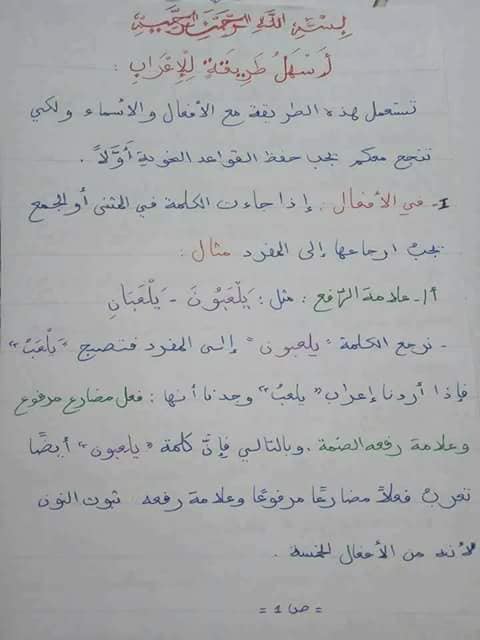 بِسْمِ اللَّهِ الرَّحْمَنِ الرَّحِيمِ
أَسْهَلُ طَرِيقَةٍ لِلْإِعْرَابِ :
تستعمل هذه الطريقة مع الأفعال والأسماء ولكي
تنجح معكم يجب حفظ القواعد النحوية أَوَّلاً.
I- في الأفعال : إذا جاءت الكلمة في المثنى أو الجمع
يجبُ ارجاعها إلى المفرد مثال :
أ/- علامة الرَّفع : مثل : يَلْعَبُونَ - يَلْعَبَانِ
- نرجع الكلمة "يلعبون" إلى المفرد فتصبح "يَلْعَبُ"
فإذا أردنا إعراب "يلعبُ" وجدنا أنها : فعل مضارع مرفوع
وعلامة رفعه الضمة . وبالتالي فإنَّ كلمة "يلعبون" أيضًا
تعربُ فعلاً مضارعًا مرفوعًا وعلامة رفعه ثبوت النون
لأنه من الأفعال الخمسة .
= ص 1 =